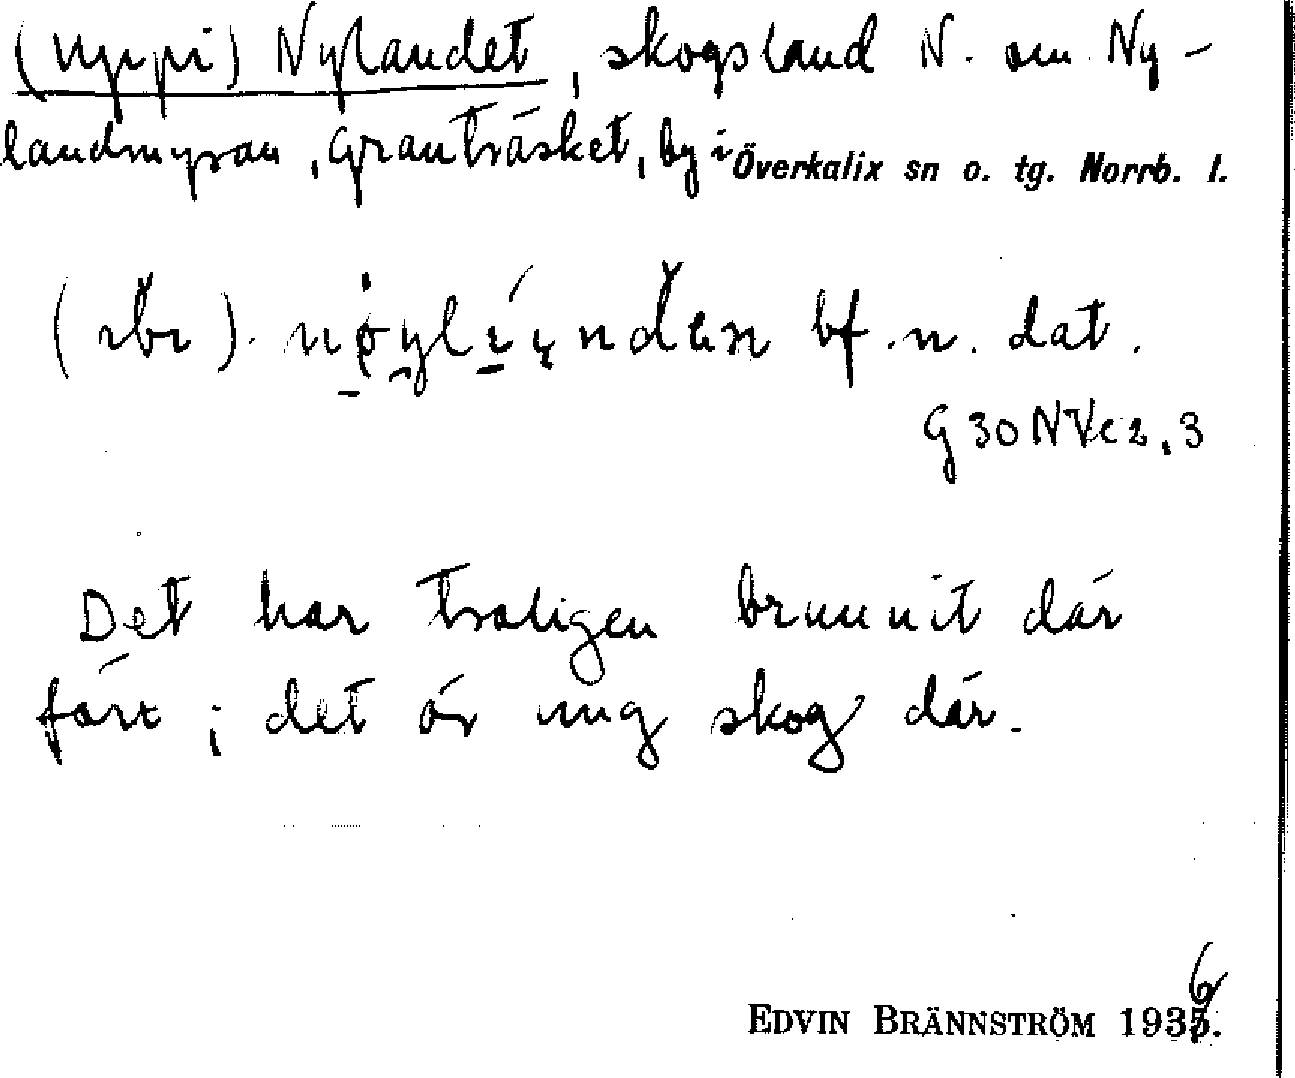 (uppi) Nylandet, skogsland N. om Ny-
landmyran, Granträsket, by i Överkalix sn o. tg. Norrb. l.
bf. n. dat.
G 30 NVc 2, 3
Det har troligen brunnit där
förr; det är ung skog där.
EDVIN BRÄNNSTRÖM 1936.